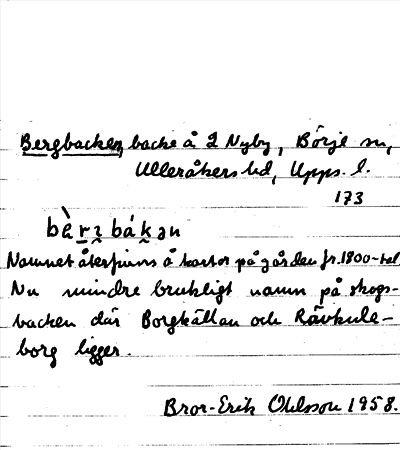 Bergbacken, backe å 2 Nyby, Börje sn,
Ulleråkers hd, Upps. l.
173
bὲrɜbákən
Namnet återfinns å kartor på gården fr. 1800-tal
Nu mindre brukligt namn på skogs-
backen där Borgkällan och Rävkule-
borg ligger.
Bror-Erik Ohlsson 1958.